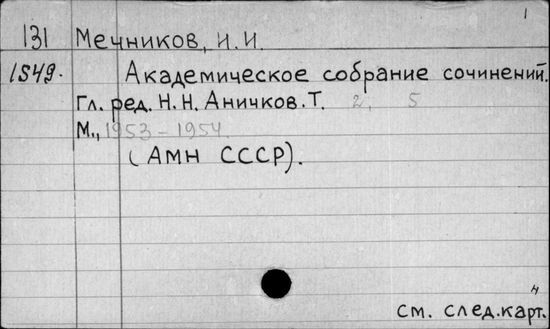 1
131 Мечников, И. И.
1549. Академическое собрание сочинений.
Гл. ред. Н. Н. Аничков. Т. 2, 5
М., 1953-1954.
(АМН СССР).
н
см. след. карт.